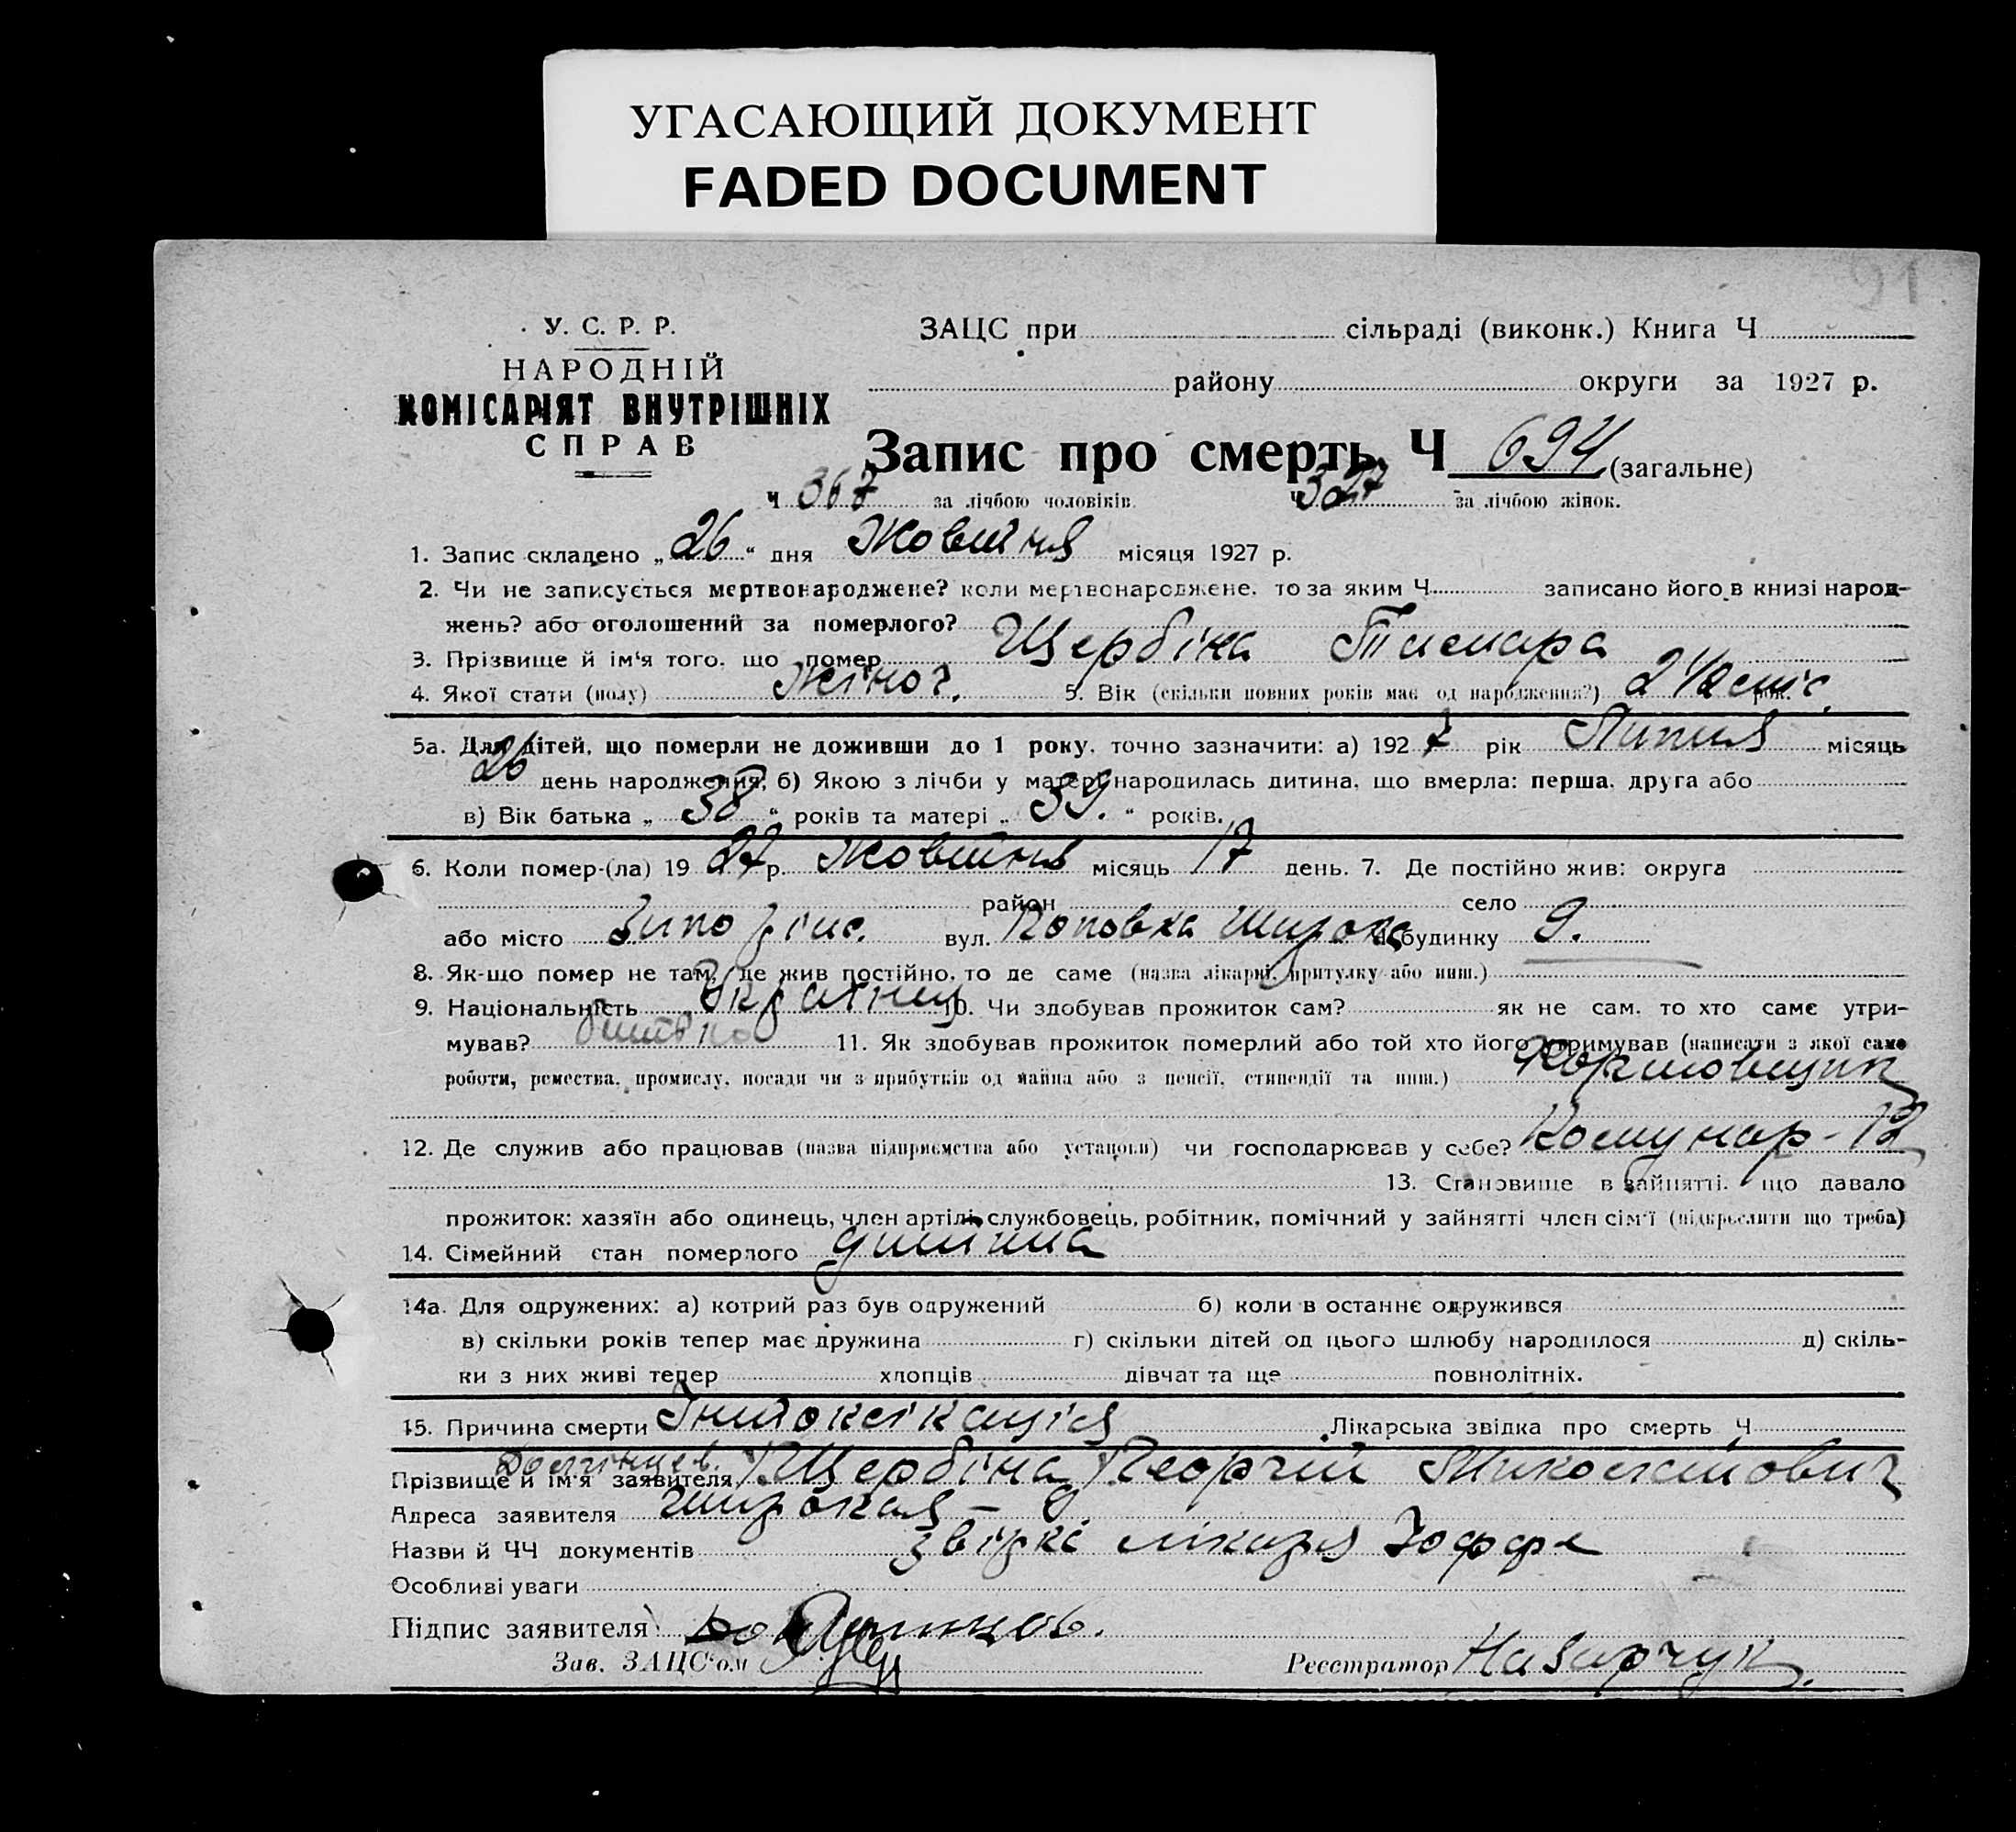 УГАСАЮЩИЙ ДОКУМЕНТ
FADED DOCUMENT
91
У. С. Р. Р.
НАРОДНІЙ
КОМІСАРІЯТ ВНУТРІШНІХ
СПРАВ
ЗАЦС при сільраді (виконк.) Книга Ч
району округи за 1927 р.
Запис про смерть Ч 694 (загальне)
Ч 367 за лічбою чоловіків. Ч 327 за лічбою жінок.
1. Запис складено „26“ дня Жовтня місяця 1927 р.
2. Чи не записується мертвонароджене? коли мертвонароджене, то за яким Ч записано його в книзі народ-
жень? або оголошений за померлого?
3. Прізвище й ім'я того, що помер Щербіна Тамара
4. Якої стати (полу) Жіноч. 5. Вік (скільки повних років має од народження?) 2 1/2 міс.
5а. Для дітей, що померли не доживши до 1 року, точно зазначити: а) 1927 рік Липня місяць
26 день народження, б) Якою з лічби у матері народилась дитина, що вмерла: перша, друга або
в) Вік батька „38“ років та матері „39.“ років.
6. Коли помер-(ла) 1927 р. Жовтня місяць 17 день. 7. Де постійно жив: округа
район село
або місто Запоріж. вул. Поповка Широка Ч будинку 9.
8. Як-що помер не там, де жив постійно, то де саме (назва лікарні, притулку або инш.)
9. Національність Україн. 10. Чи здобував прожиток сам? як не сам, то хто саме утри-
мував? батько 11. Як здобував прожиток померлий або той хто його утримував (написати з якої само
роботи, ремества, промислу, посади чи з прибутків од майна або з пенсії, стипендії та инш.) Формовщик
12. Де служив або працював (назва підприємства або установи) чи господарював у себе? Комунар - 12
13. Становище в зайнятті, що давало
прожиток: хазяїн або одинець, член артілі, службовець, робітник, помічний у зайнятті член сім'ї (підкреслити що треба)
14. Сімейний стан померлого дитина
14а. Для одружених: а) котрий раз був одружений б) коли в останнє одружився
в) скільки років тепер має дружина г) скільки дітей од цього шлюбу народилося д) скіль-
ки з них живі тепер хлопців дівчат та ще повнолітніх.
15. Причина смерти Інтоксікація Лікарська звідка про смерть Ч
Прізвище й ім'я заявителя Щербіна Георгій Миколайович
Адреса заявителя Широкая - 9
Назви й ЧЧ документів звідкі лікаря Іоффе
Особливі уваги
Підпис заявителя
Зав. ЗАЦС'ом Реєстратор Назарчук